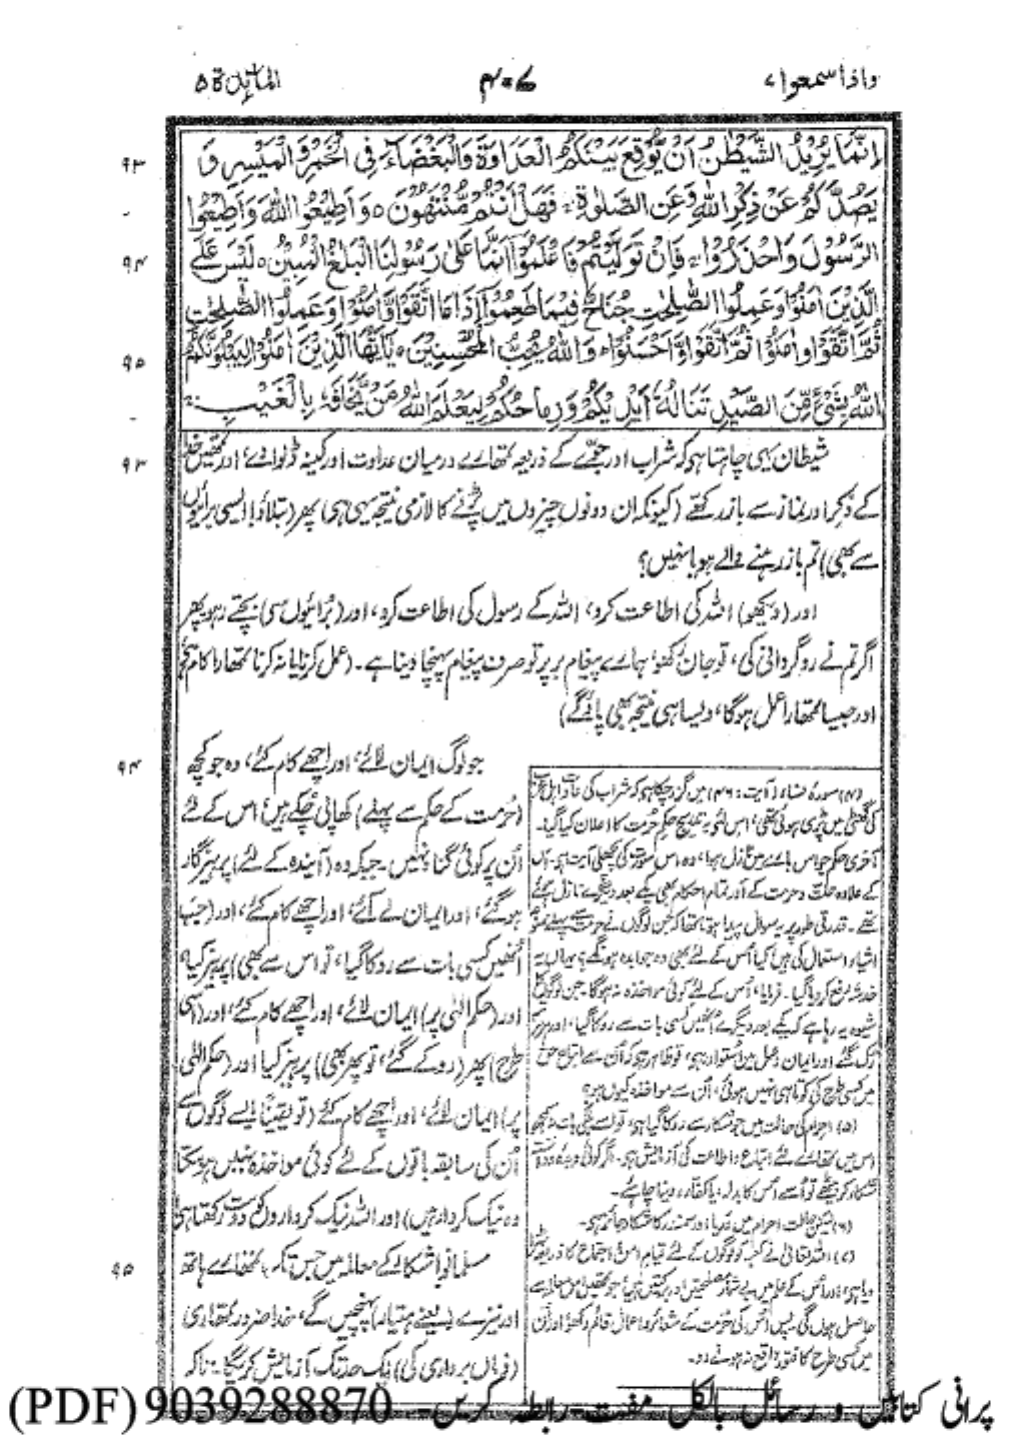 واذا سمعوا ۷
۴۰۷
المائدة ۵
اِنَّمَا يُرِيْدُ الشَّيْطٰنُ اَنْ يُّوْقِعَ بَيْنَكُمُ الْعَدَاوَةَ وَالْبَغْضَآءَ فِى الْخَمْرِ وَالْمَيْسِرِ وَ
۹۳
يَصُدَّكُمْ عَنْ ذِكْرِ اللّٰهِ وَعَنِ الصَّلٰوةِ ۚ فَهَلْ اَنْتُمْ مُّنْتَهُوْنَ ۵ وَاَطِيْعُوا اللّٰهَ وَاَطِيْعُوا
الرَّسُوْلَ وَاحْذَرُوْا ۚ فَاِنْ تَوَلَّيْتُمْ فَاعْلَمُوْٓا اَنَّمَا عَلٰى رَسُوْلِنَا الْبَلٰغُ الْمُبِيْنُ ۵ لَيْسَ عَلَى
۹۴
الَّذِيْنَ اٰمَنُوْا وَعَمِلُوا الصّٰلِحٰتِ جُنَاحٌ فِيْمَا طَعِمُوْٓا اِذَا مَا اتَّقَوْا وَّاٰمَنُوْا وَعَمِلُوا الصّٰلِحٰتِ
ثُمَّ اتَّقَوْا وَّاٰمَنُوْا ثُمَّ اتَّقَوْا وَّاَحْسَنُوْا ۗ وَاللّٰهُ يُحِبُّ الْمُحْسِنِيْنَ ۵ يٰٓاَيُّهَا الَّذِيْنَ اٰمَنُوْا لَيَبْلُوَنَّكُمُ
۹۵
اللّٰهُ بِشَىْءٍ مِّنَ الصَّيْدِ تَنَالُهٗٓ اَيْدِيْكُمْ وَرِمَاحُكُمْ لِيَعْلَمَ اللّٰهُ مَنْ يَّخَافُهٗ بِالْغَيْبِ ۚ
شیطان یہی چاہتا ہو کہ شراب اور جوئے کے ذریعہ تمھارے درمیان عداوت اور کینہ ڈلوا دے، اور تمھیں خدا
۹۳
کے ذکر اور نماز سے باز رکھے (کیونکہ ان دونوں چیزوں میں پڑنے کا لازمی نتیجہ یہی ہی) پھر (بتلاؤ، ایسی برائیوں
سے بھی) تم باز رہنے والے ہو یا نہیں؟
اور (دیکھو) اللہ کی اطاعت کرو، اللہ کے رسول کی اطاعت کرو، اور (برائیوں سی) بچتے رہو۔ پھر
اگر تم نے روگردانی کی، تو جان رکھو، ہمارے پیغام بر پر تو صرف پیغام پہنچا دینا ہے۔ (عمل کرنا یا نہ کرنا تمھارا کام ہی،
اور جیسا تمھارا عمل ہوگا، ویسا ہی نتیجہ بھی پاؤ گے)
جو لوگ ایمان لائے، اور اچھے کام کئے، وہ جو کچھ
۹۴
(حُرمت کے حکم سے پہلے) کھا پی چکے ہیں، اس کے لئے
اُن پر کوئی گناہ نہیں۔ جبکہ وہ (آیندہ کے لئے) پرہیزگار
ہوگئے، اور ایمان لے آئے، اور اچھے کام کئے، اور (جب
اُنھیں کسی بات سے روکا گیا، تو اس سے بھی) پرہیز کیا،
اور (حکم الٰہی پر) ایمان لائے، اور اچھے کام کئے، اور (اسی
طرح) پھر (روکے گئے، تو پھر بھی) پرہیز کیا اور (حکم الٰہی
پر) ایمان لائے، اور اچھے کام کئے (تو یقیناً ایسے لوگوں سے
اُن کی سابقہ باتوں کے لئے کوئی مواخذہ نہیں ہو سکتا
وہ نیک کردار ہیں) اور اللہ نیک کرداروں کو دوست رکھتا ہی
مسلمانو! شکار کے معاملہ میں جس تک تمھارے ہاتھ
۹۵
اور نیزے (یعنے ہتیار) پہنچیں گے، خدا ضرور تمھاری
(فرماں برداری کی) ایک حد تک آزمایش کریگا۔ تاکہ
(۴) سورۂ نساء (آیت: ۴۶) میں گزر چکا ہو کہ شراب کی عادت اہل عرب
کی گھٹی میں پڑی ہوئی تھی، اس لئے بہ تدریج حکم حرمت کا اعلان کیا گیا۔
آخری حکم جو اس بارے میں نازل ہوا، وہ اس سورت کی پچھلی آیت ہی۔ اس
کے علاوہ حلت و حرمت کے اور تمام احکام بھی یکے بعد دیگرے نازل ہوئے
تھے۔ قدرتی طور پر یہ سوال پیدا ہوتا تھا کہ جن لوگوں نے حرمت سے پہلے ممنوعہ
اشیاء استعمال کی ہیں، کیا اُس کے لئے بھی وہ جوابدہ ہونگے؟ یہاں یہ
خدشہ رفع کر دیا گیا۔ فرمایا، اُس کے لئے کوئی مواخذہ نہ ہوگا۔ جن لوگوں کا
شیوہ یہ رہا ہے کہ یکے بعد دیگرے اُنھیں کسی بات سے روکا گیا، اور وہ
رُک گئے اور ایمان و عمل میں اُستوار رہی، تو ظاہر ہی کہ اُن سے اتباع حق
میں کسی طرح کی کوتاہی نہیں ہوئی، اُن سے مواخذہ کیوں ہو؟
(۵) احرام کی حالت میں جو شکار سے روکا گیا ہو، تو اسے ہلکی بات نہ سمجھو
اس میں تمھارے لئے اتباع و اطاعت کی آزمایش ہو۔ اگر کوئی دیدہ و دانستہ
شکار کر بیٹھے تو اُسے اُس کا بدلہ، یا کفارہ، دینا چاہئے۔
(۶) لیکن حالت احرام میں دریا اور سمندر کا شکار جائز ہی۔
(۷) اللہ تعالٰی نے کعبہ کو لوگوں کے لئے قیام امن و اجتماع کا ذریعہ
دیا ہی، اور اُس کے علم میں بے شمار مصلحتیں اور برکتیں ہیں، جو تمھیں اس معاملہ سے
حاصل ہوں گی۔ پس اُس کی حُرمت کے شعائر و اعمال قائم رکھو، اور اُن
میں کسی طرح کا فتور واقع نہ ہونے دو۔
پرانی کتابیں و رسائل بالکل مفت رابطہ کریں۔ 9039288870 (PDF)